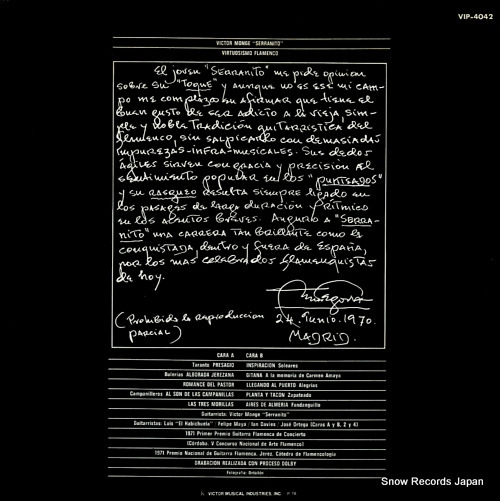 VIP-4042
VICTOR MONGE "SERRANITO"
VIRTUOSISMO FLAMENCO
El joven "SERRANITO" me pide opinion
sobre su "TOQUE" y aunque no es ese mi cam-
po me complazco en afirmar que tiene el
buen gusto de ser adicto a la vieja, sim-
ple y noble tradición guitarrística del
flamenco, sin salpicarlo con demasiadas
impurezas-infra-musicales. Sus dedos
ágiles sirven con gracia y precisión el
sentimiento popular en los "PUNTEADOS"
y su RASGUEO resulta siempre ligado en
los pasajes de larga duración y rítmico
en los acentos breves. Auguro a "SERRA-
NITO" una carrera tan brillante como la
conquistada, dentro y fuera de España,
por los mas celebrados flamenquistas
de hoy.
24. Junio. 1970.
(Prohibida la reproduccion
parcial)
MADRID.
CARA A CARA B
Taranto PRESAGIO INSPIRACION Soleares
Bulerias ALBORADA JEREZANA GITANA A la memoria de Carmen Amaya
ROMANCE DEL PASTOR LLEGANDO AL PUERTO Alegrias
Campanilleros AL SON DE LAS CAMPANILLAS PLANTA Y TACON Zapateado
LAS TRES MORILLAS AIRES DE ALMERIA Fandanguillo
Guitarrista: Victor Monge "Serranito"
Guitarristas: Luis "El Habichuela" Felipe Maya / Ian Davies / José Ortega (Caras A y B, 2 y 4)
1971 Primer Premio Guitarra Flamenca de Concierto
(Córdoba. V Concurso Nacional de Arte Flamenco)
1971 Premio Nacional de Guitarra Flamenca. Jerez. Cátedra de Flamencología
GRABACION REALIZADA CON PROCESO DOLBY
VICTOR MUSICAL INDUSTRIES, INC.
Snow Records Japan